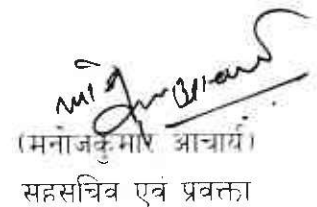 (मनोजकुमार आचार्य)
सहसचिव एवं प्रवक्ता